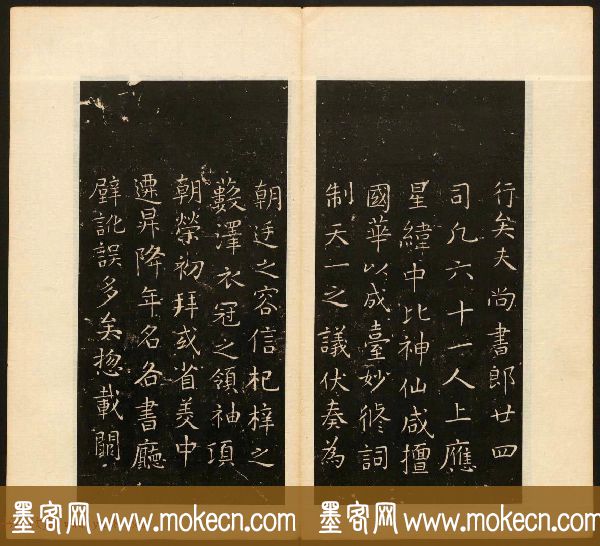 行矣夫尚書郎廿四
司凡六十一人上應
星緯中比神仙咸擅
國華以成臺妙修詞
制天一之議伏奏為
朝廷之容信杞梓之
藪澤衣冠之領袖項
朝榮初拜或省美中
遷昇降年名各書廳
壁訛誤多矣揔載闕
墨客网 www.mokecn.com 墨客网 www.mokecn.com